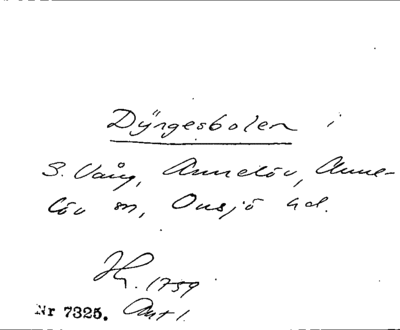 Dÿngesbolen i
S. Vång, Annelöv, Anne-
löv sn, Onsjö hd.
H. 1759
Nr 7325. Akt 1.